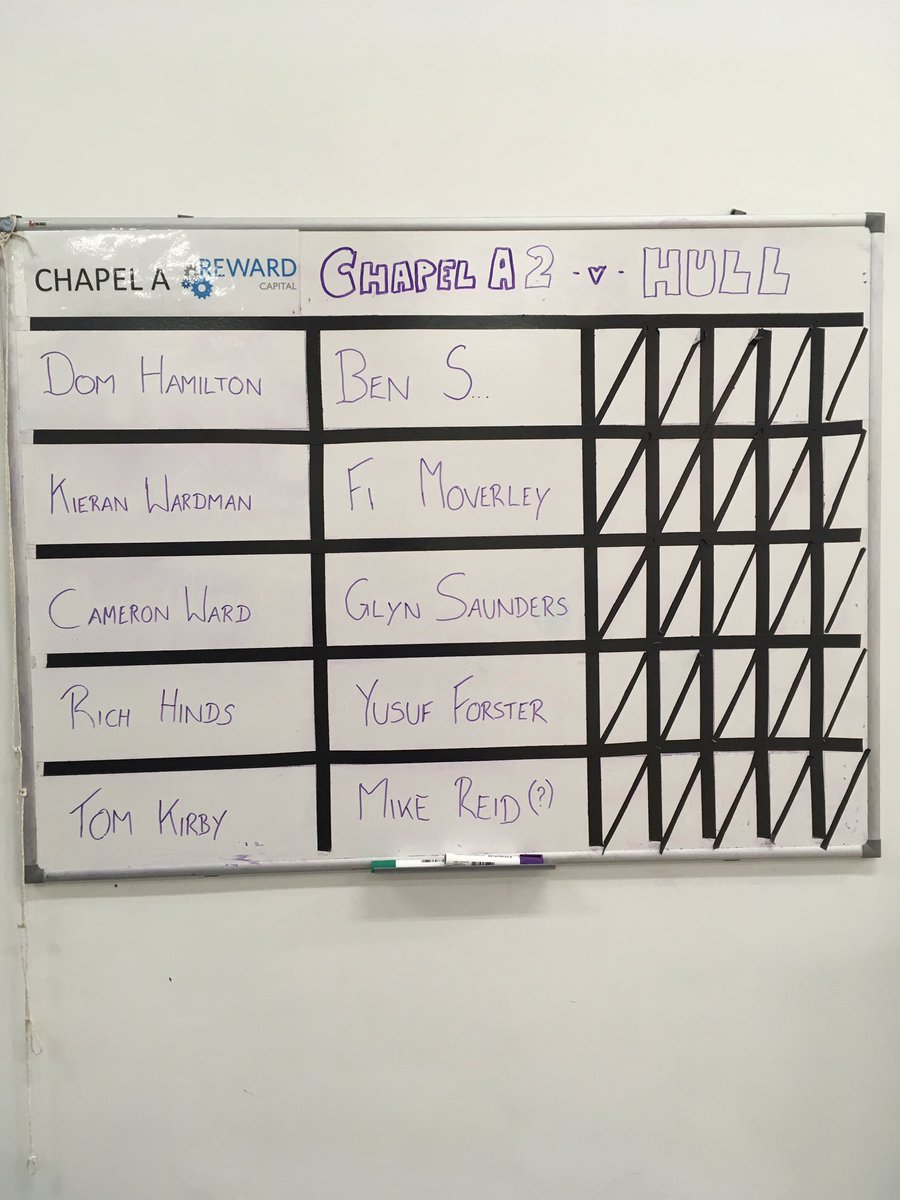 CHAPEL A REWARD CAPITAL
CHAPEL A 2 - v - HULL
DOM HAMILTON BEN S...
KIERAN WARDMAN FI MOVERLEY
CAMERON WARD GLYN SAUNDERS
RICH HINDS YUSUF FORSTER
TOM KIRBY MIKE REID (?)